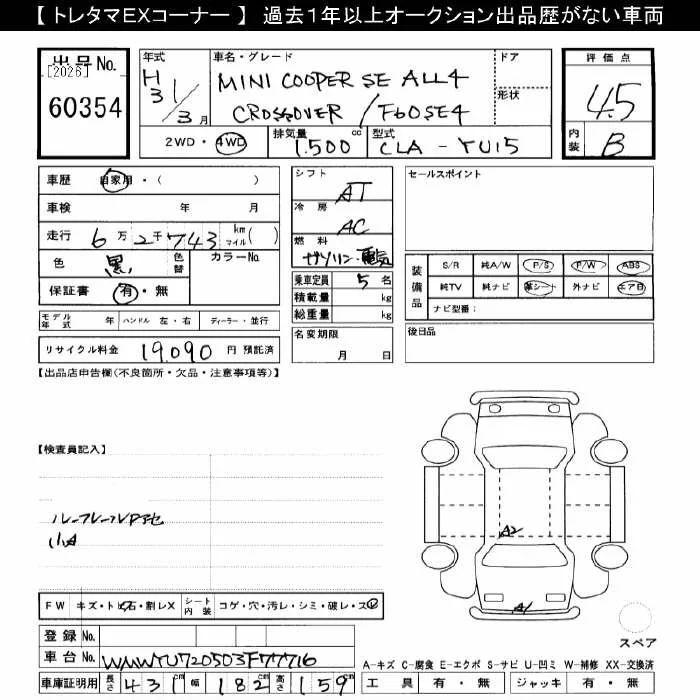 【 トレタマEXコーナー 】 過去１年以上オークション出品歴がない車両
出品No.
[2026]
60354
年式
H
31/3月
車名・グレード
MINI COOPER SE ALL4
CROSSOVER / F60SE4
ドア
形状
評価点
4.5
内装 B
2WD・4WD
排気量 1.500 cc
型式 CLA - YU15
車歴 自家用・( )
車検 年 月
走行 6万2千743 km マイル ( )
色 黒 色替 カラーNo.
保証書 有・無
モデル年式 年 ハンドル 左・右 ディーラー・並行
リサイクル料金 19,090 円 預託済
シフト AT
冷房 AC
燃料 ガソリン・電気
乗車定員 5 名
積載量 kg
総重量 kg
名変期限
月 日
セールスポイント
装備品
S/R 純A/W P/S P/W ABS
純TV 純ナビ 革シート 外ナビ エア日
ナビ型番：
後日品
【出品店申告欄(不良箇所・欠品・注意事項等)】
【検査員記入】
ルーフレール
小A
A2
A1
スペア
FW キズ・トビ石・割レX シート内装 コゲ・穴・汚レ・シミ・破レ・スレ
登録No.
車台No. WMWYU720503F77716
車庫証明用 長さ 431 幅 182 高さ 159
A-キズ C-腐食 E-エクボ S-サビ U-凹ミ W-補修 XX-交換済
工具 有・無 ジャッキ 有・無